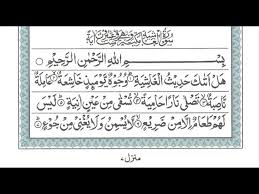 بِسْمِ اللّٰهِ الرَّحْمٰنِ الرَّحِيْمِ
هَلْ اَتٰىكَ حَدِيْثُ الْغَاشِيَةِ وُجُوْهٌ يَّوْمَئِذٍ خَاشِعَةٌ عَامِلَةٌ
نَّاصِبَةٌ تَصْلٰى نَارًا حَامِيَةً تُسْقٰى مِنْ عَيْنٍ اٰنِيَةٍ لَيْسَ
لَهُمْ طَعَامٌ اِلَّا مِنْ ضَرِيْعٍ لَّا يُسْمِنُ وَلَا يُغْنِيْ مِنْ جُوْعٍ
منزل ٧